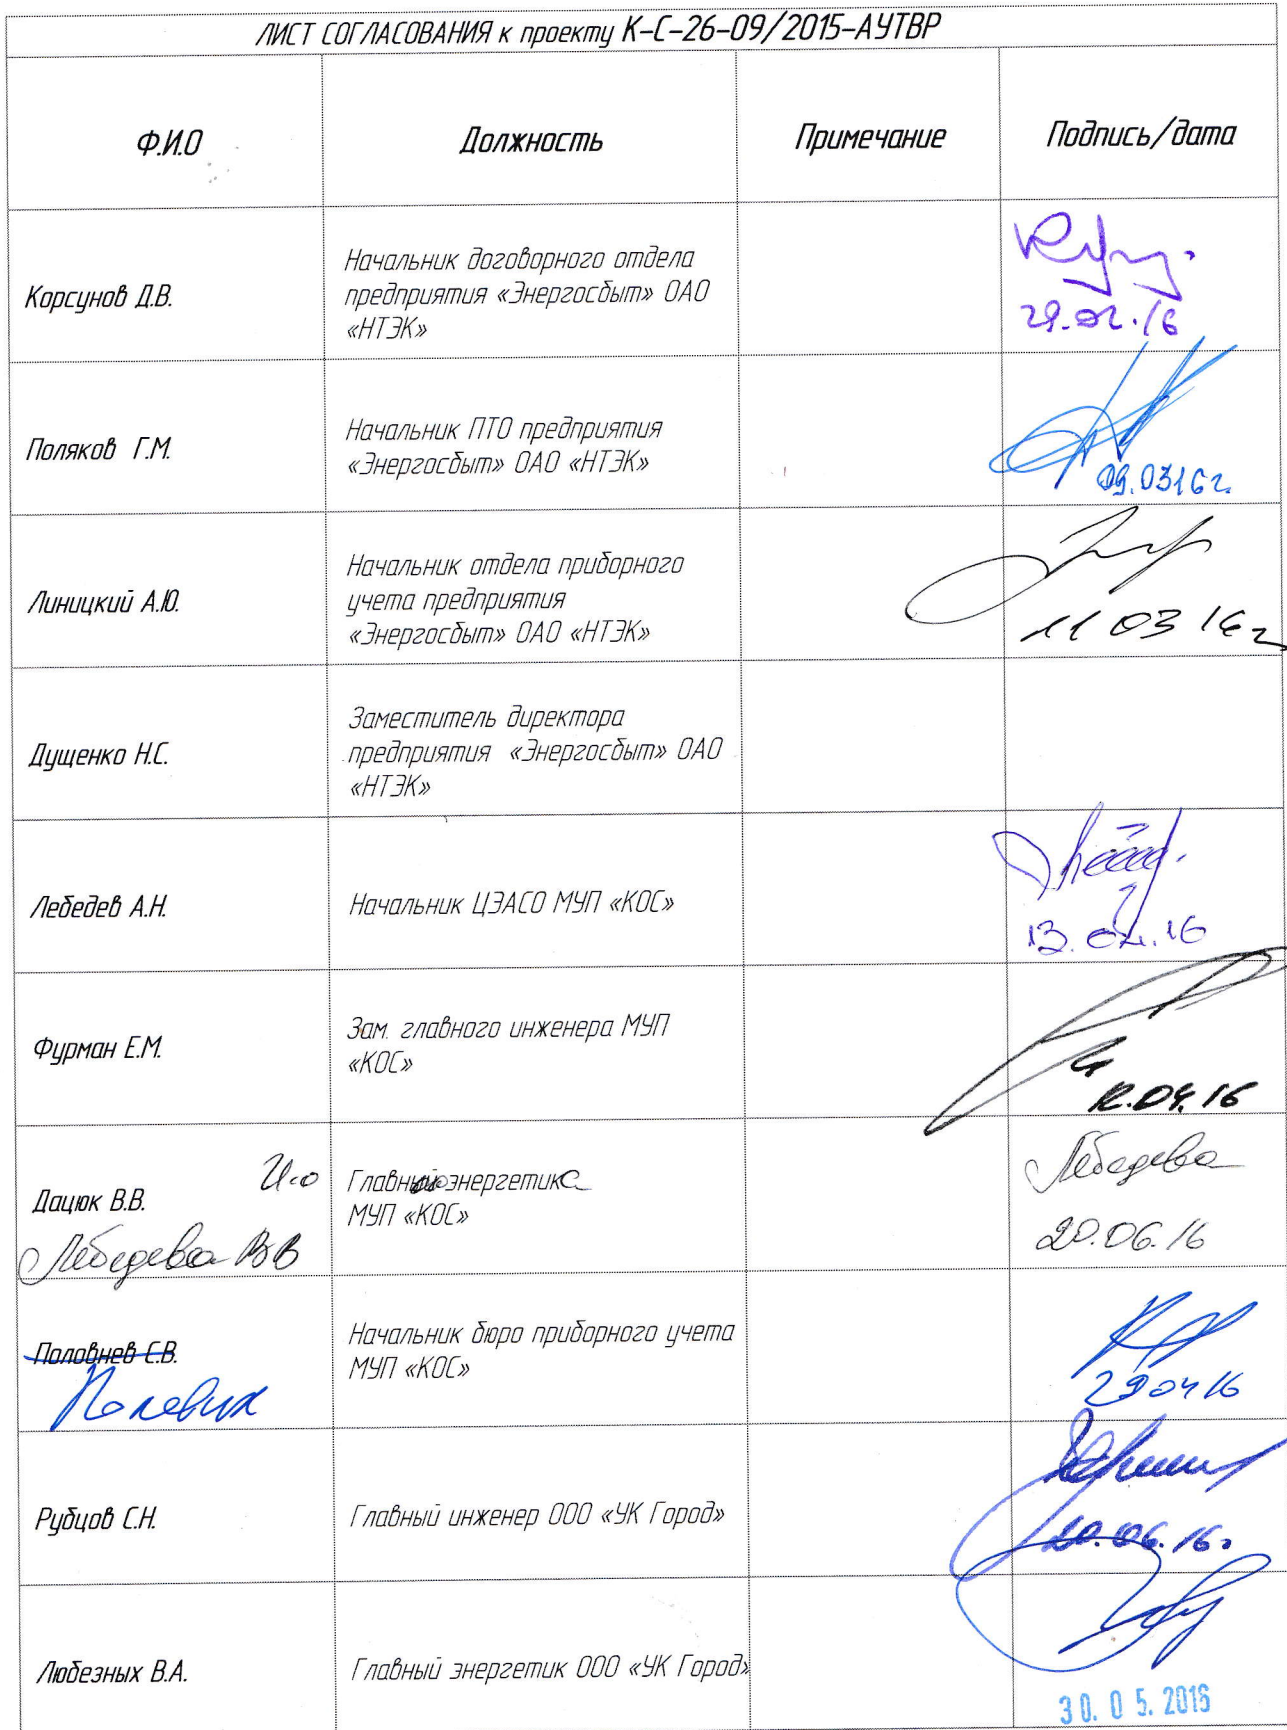 ЛИСТ СОГЛАСОВАНИЯ к проекту К-С-26-09/2015-АУТВР
Ф.И.О
Должность
Примечание
Подпись/дата
Корсунов Д.В.
Начальник договорного отдела
предприятия «Энергосбыт» ОАО
«НТЭК»
29.02.16
Поляков Г.М.
Начальник ПТО предприятия
«Энергосбыт» ОАО «НТЭК»
09.0316г.
Линицкий А.Ю.
Начальник отдела приборного
учета предприятия
«Энергосбыт» ОАО «НТЭК»
11 03 16г
Дущенко Н.С.
Заместитель директора
предприятия «Энергосбыт» ОАО
«НТЭК»
Лебедев А.Н.
Начальник ЦЭАСО МУП «КОС»
13.04.16
Фурман Е.М.
Зам. главного инженера МУП
«КОС»
12.04.16
Дацюк В.В. И.о
Лебедева ВВ
Главного энергетика
МУП «КОС»
Лебедева
20.06.16
Половнев С.В.
Полевик
Начальник бюро приборного учета
МУП «КОС»
290416
Рубцов С.Н.
Главный инженер ООО «УК Город»
20.06.16.
Любезных В.А.
Главный энергетик ООО «УК Город»
30.05.2016